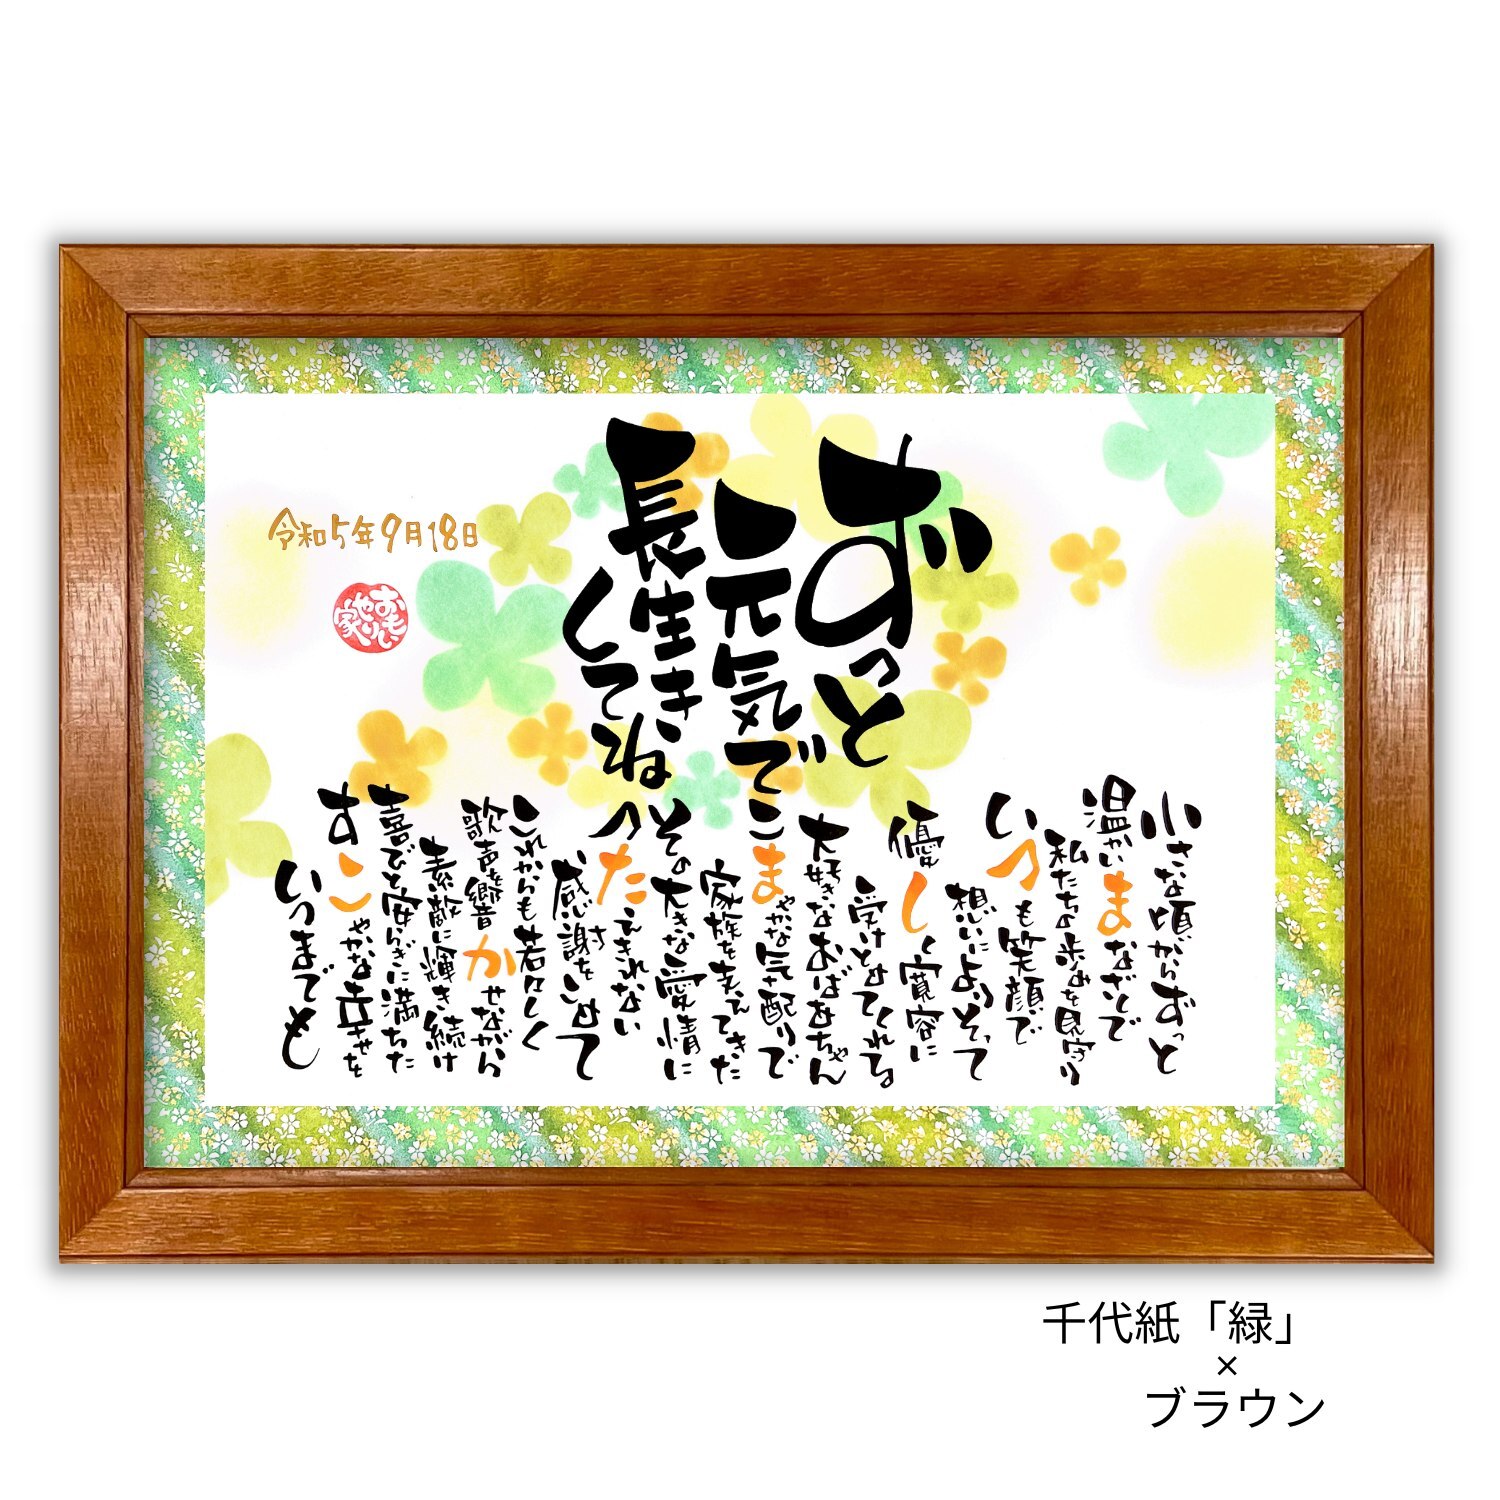 ずっと
元気で
長生き
してね
小さな頃からずっと
温かいまなざしで
私たちの歩みを見守り
いつも笑顔で
想いによりそって
優しく寛容に
受けとめてくれる
大好きなおばあちゃん
こまやかな気配りで
家族を支えてきた
その大きな愛情に
つたえきれない
感謝をこめて
これからも若々しく
歌声を響かせながら
素敵に輝き続け
喜びと安らぎに満ちた
すこやかな幸せを
いつまでも
令和5年9月18日
おもいやり家
千代紙「緑」
×
ブラウン